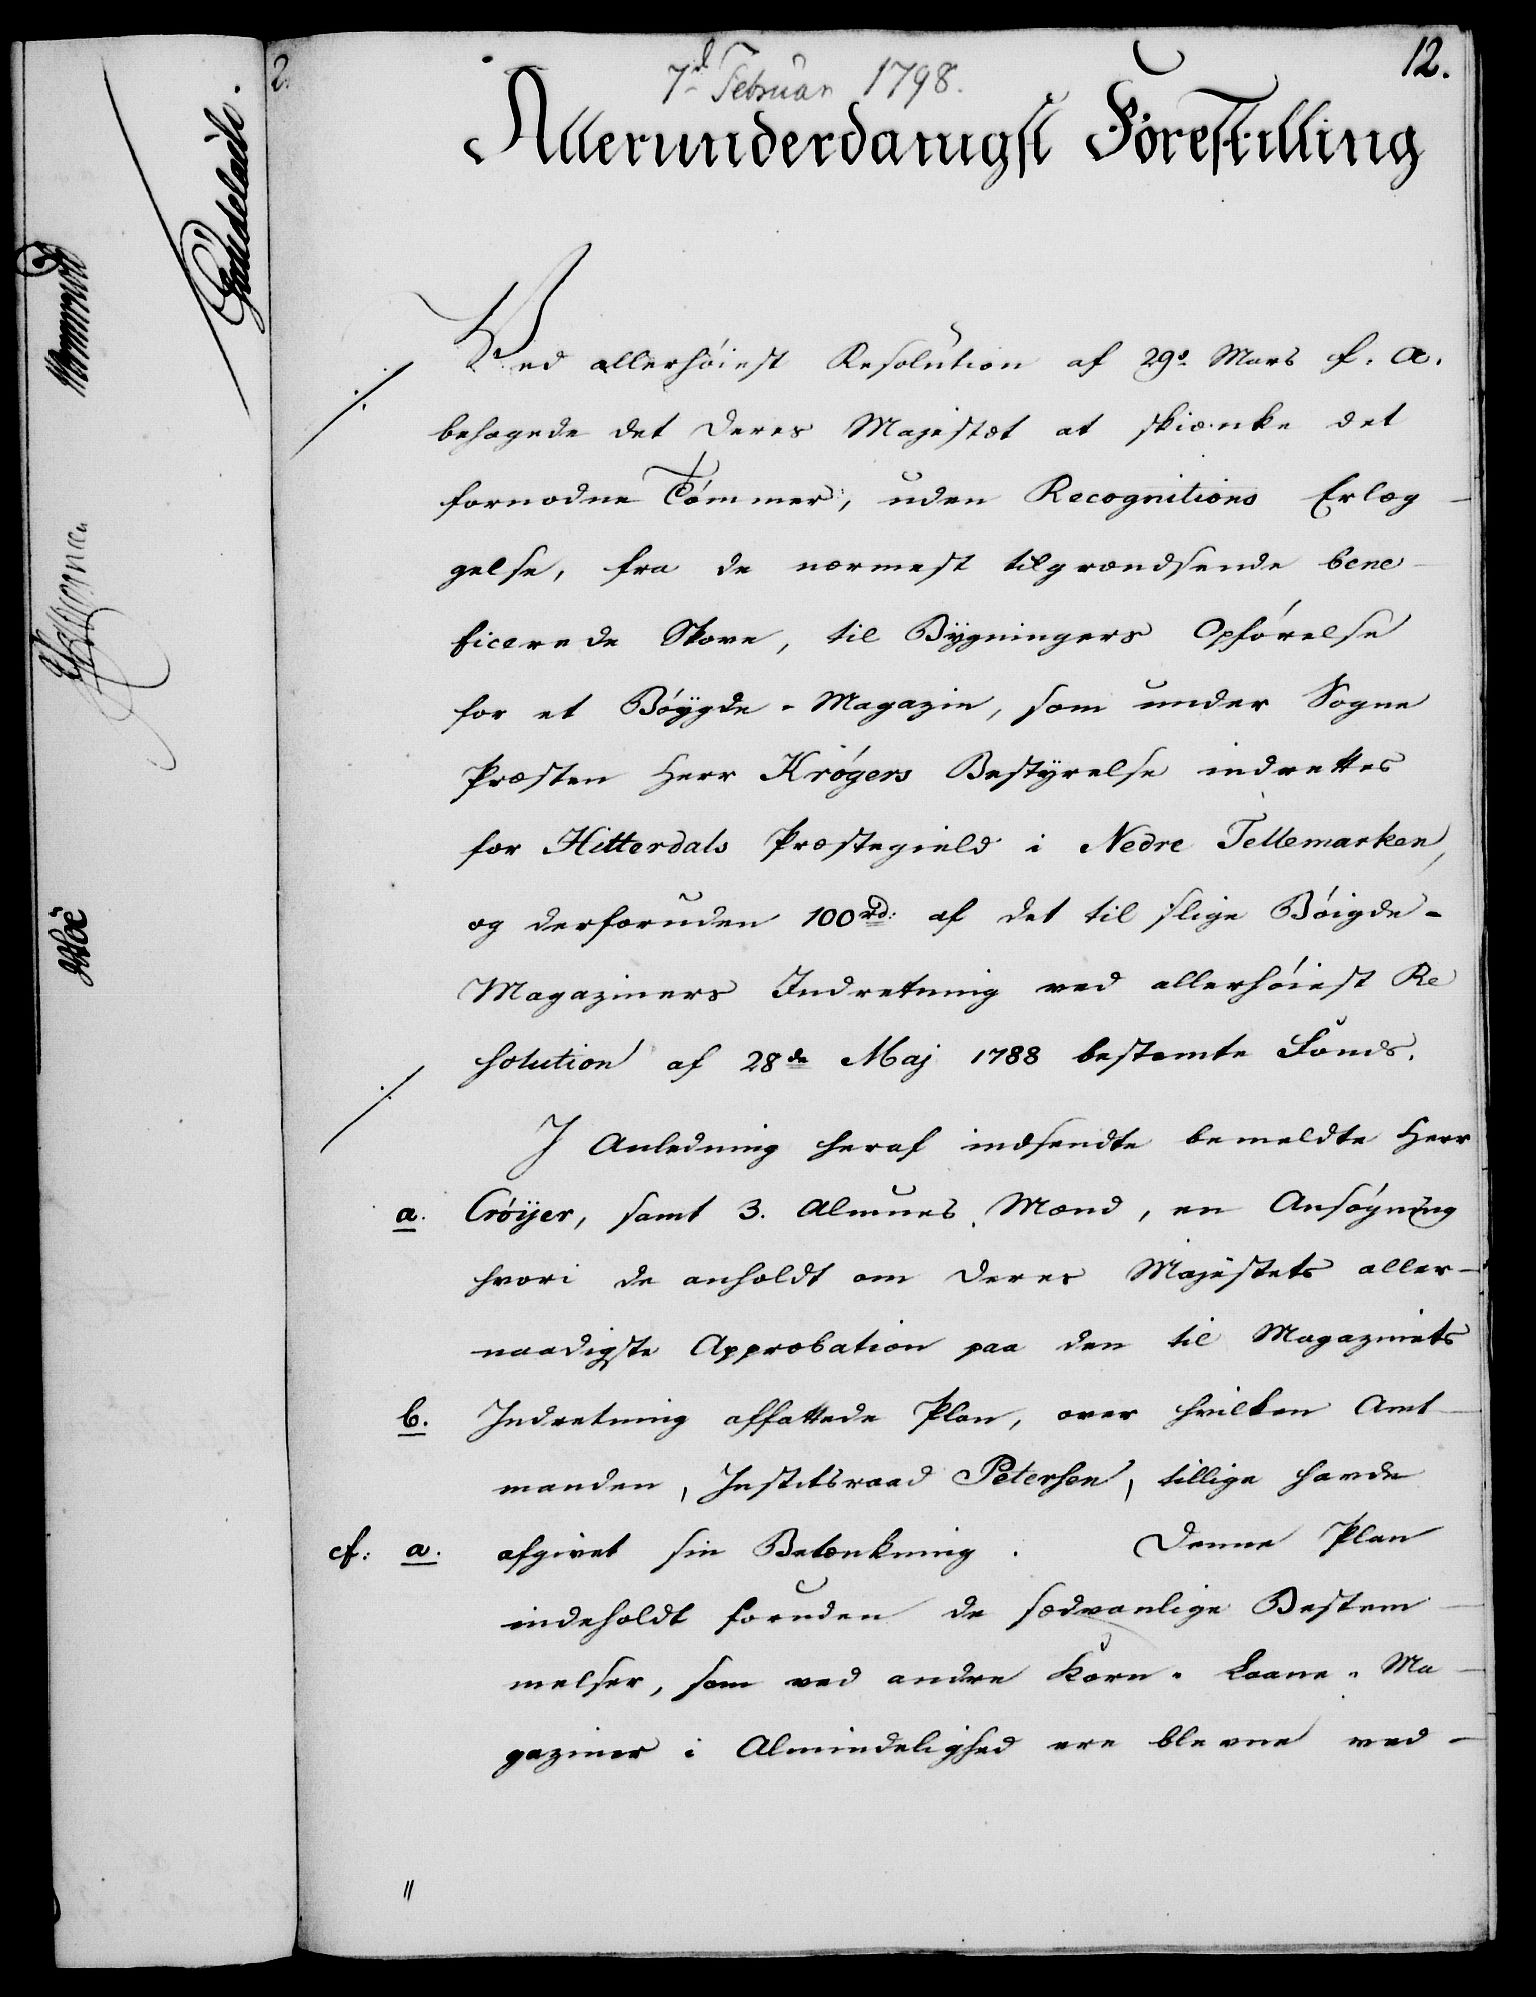 12.
7d Februar 1798.
Allerunderdanigst Forestilling
Ved allerhöiest Resolution af 29s Mars f. A.
behagede det Deres Majestæt at skiænke det
fornødne Tömmer, uden Recognitions Erlæg-
gelse, fra de nærmest tilgrændsende bene-
ficerede Skove, til Bygningers Opförelse
for et Böygde-Magazin, som under Sogne
Præsten Herr Krögers Bestyrelse indrettes
for Hitterdals Præstegield i Nedre Tellemarken,
og derforuden 100 rd: af det til slige Böigde-
Magaziners Indretning ved allerhöiest Re
solution af 28de Maj 1788 bestemte Fonds.
I Anledning heraf indsendte bemeldte Herr
a. Cröijer, samt 3. Almues Mænd, en Ansögning
hvori de anholdt om Deres Majestets aller-
naadigste Approbation paa den til Magazinets
b. Indretning affattede Plan, over hvilken Amt-
manden, Justitsraad Petersen, tillige havde
cf: a. afgivet sin Betænkning. Denne Plan
indeholdt foruden de sædvanlige Bestem-
melser, som ved andre Korn-Laane-Ma-
gaziner i Almindelighed ere blevne ved-